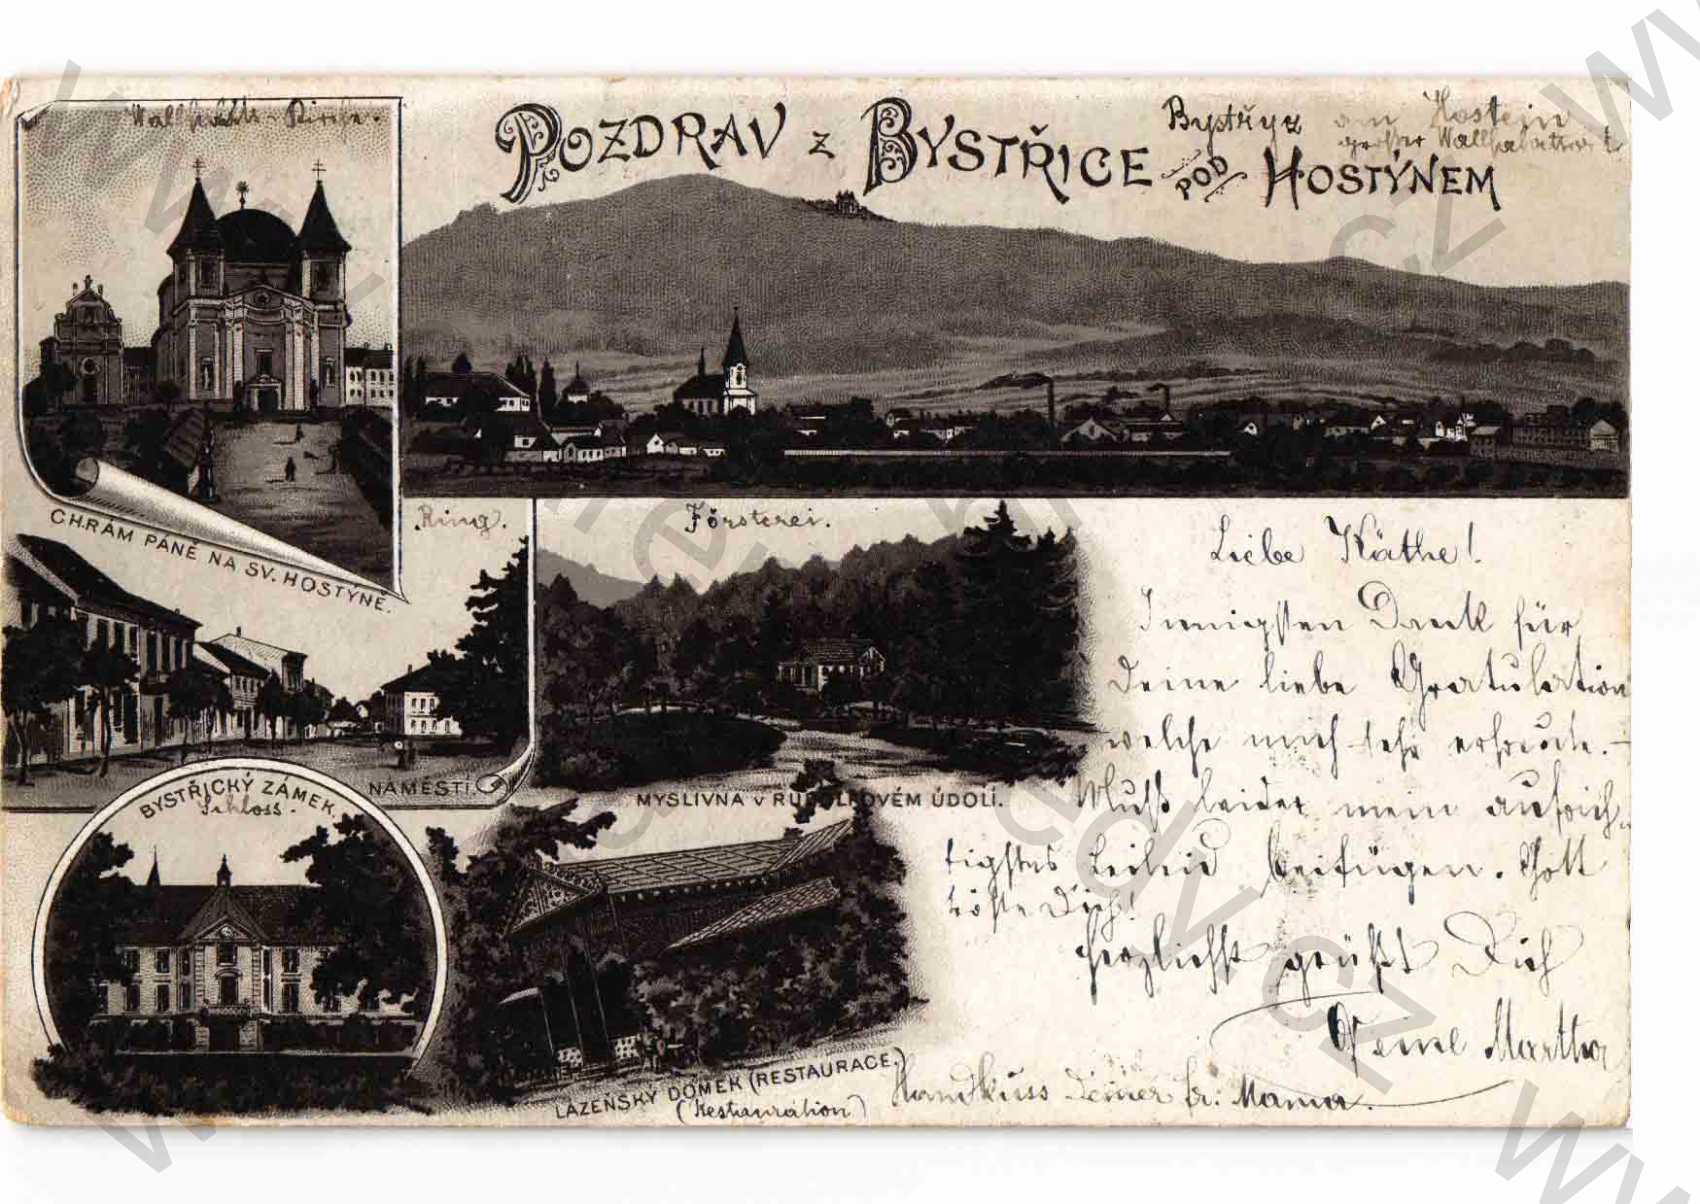 Wallfahrts-Kirche.
POZDRAV z BYSTŘICE POD HOSTÝNEM
Bystřyz am Hostein
großer Wallfahrtsort
CHRÁM PÁNĚ NA SV. HOSTÝNĚ.
Ring.
Försterei.
NÁMĚSTÍ.
MYSLIVNA v RUDOLFOVÉM ÚDOLÍ.
BYSTŘICKÝ ZÁMEK.
Schloss.
LÁZEŇSKÝ DOMEK (RESTAURACE.)
(Restauration)
Liebe Käthe!
Innigsten Dank für
Deine liebe Gratulation
welche mich sehr erfreute. –
Muß leider mein aufrich-
tigstes Beileid beifügen. Gott
tröste Dich!
Herzlichst grüßt Dich
Martha
Handkuss Deiner fr: Mama.
www. .cz